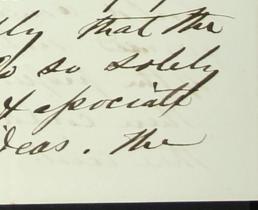 ly that the
do so solely
& associate
ideas. The